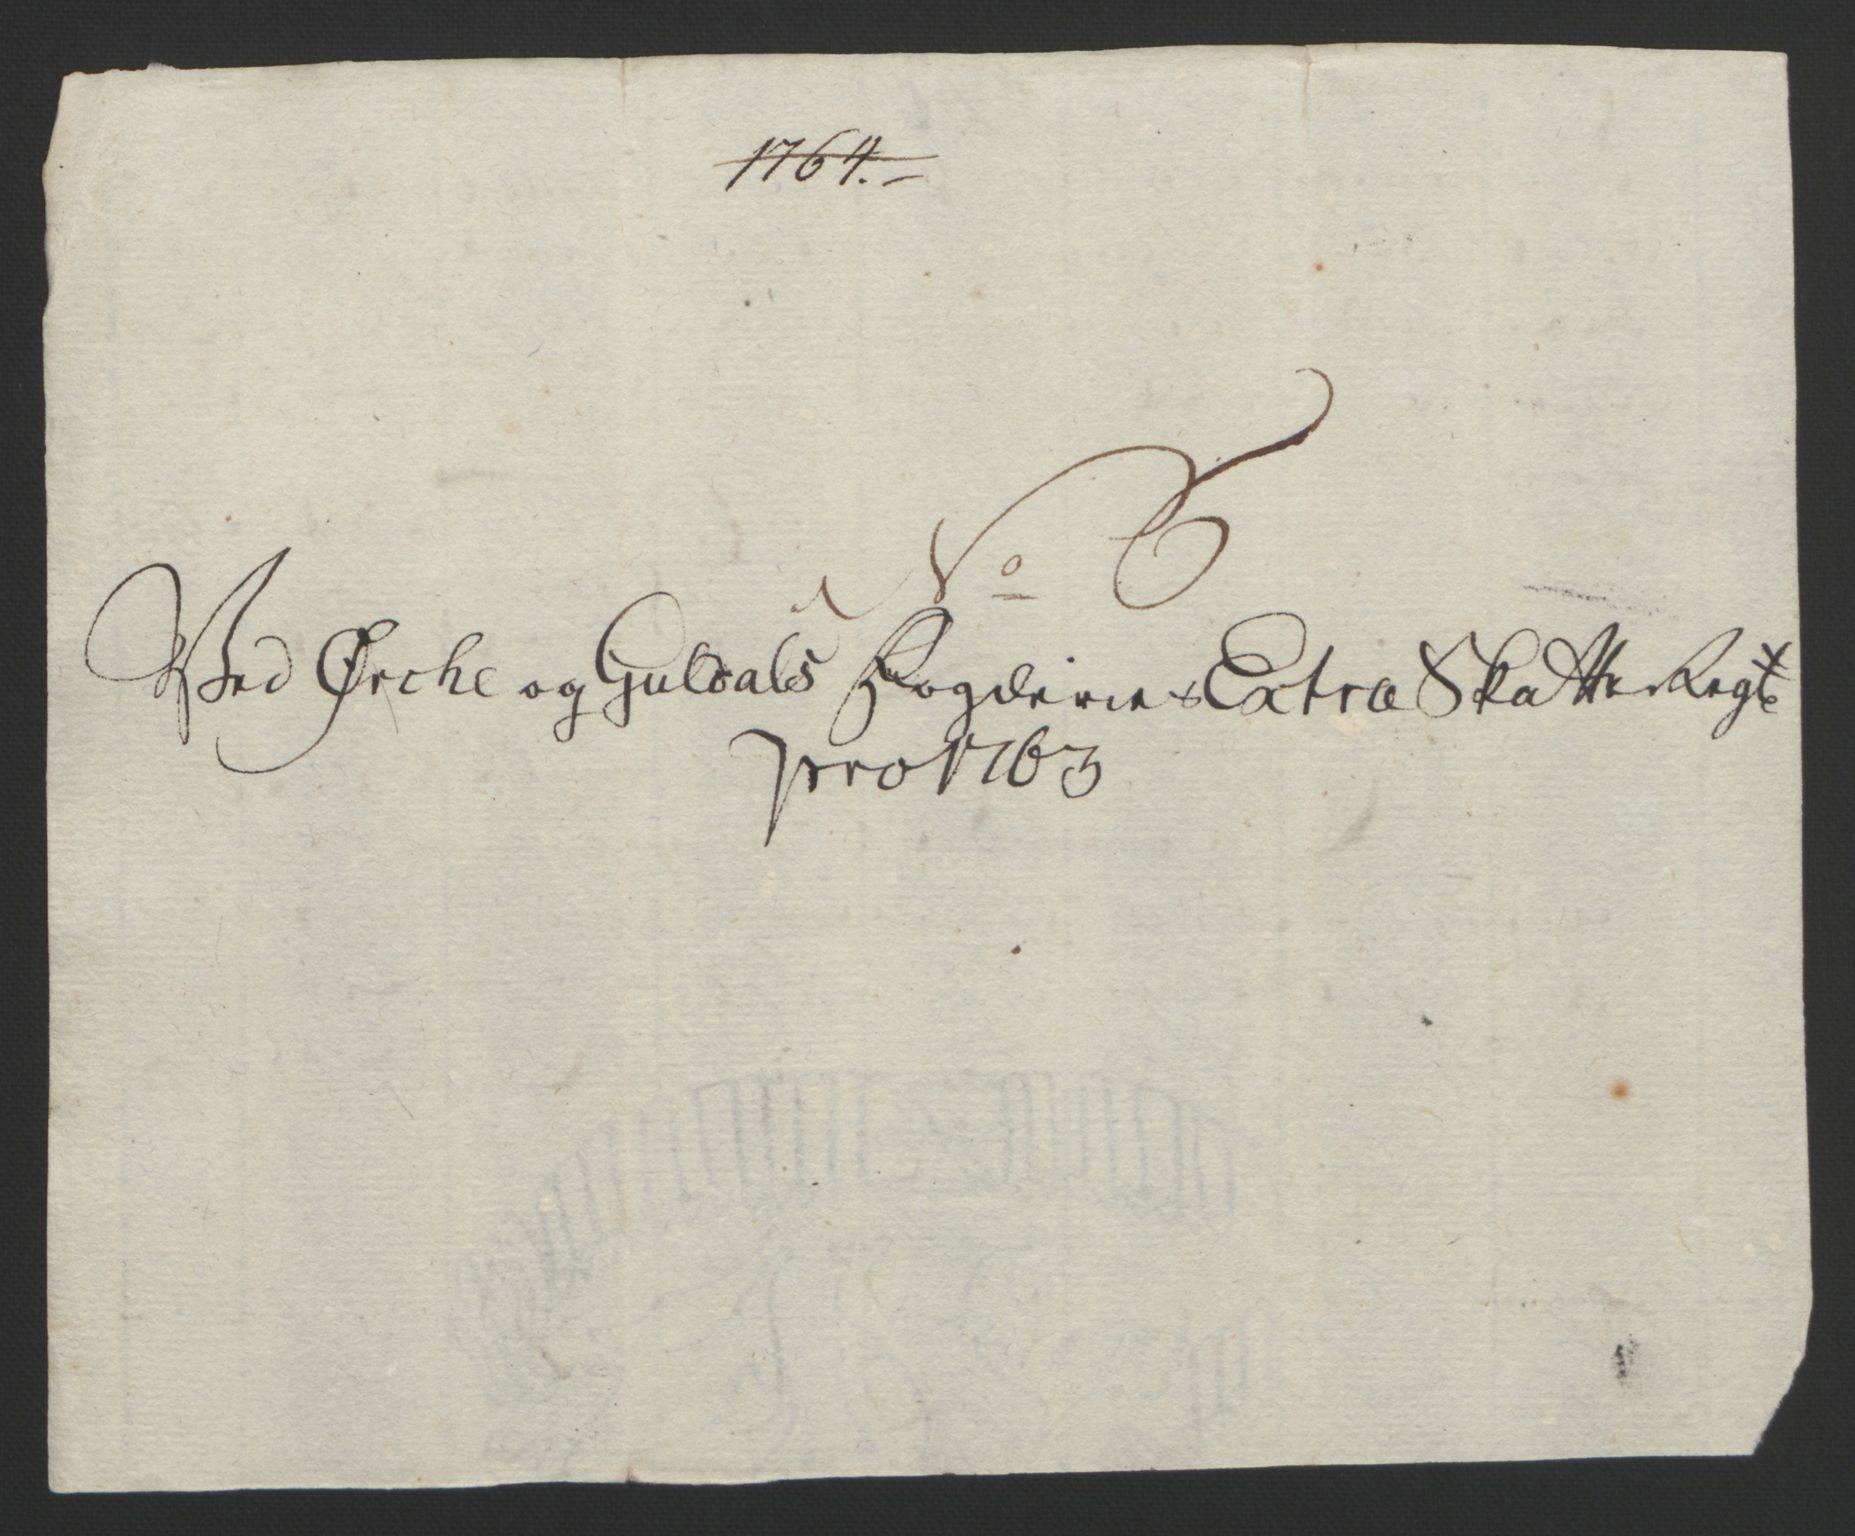 1764.
No 6
Ved Ørche og Guldals Fogderies Extra Skatte Regt
pro 1763